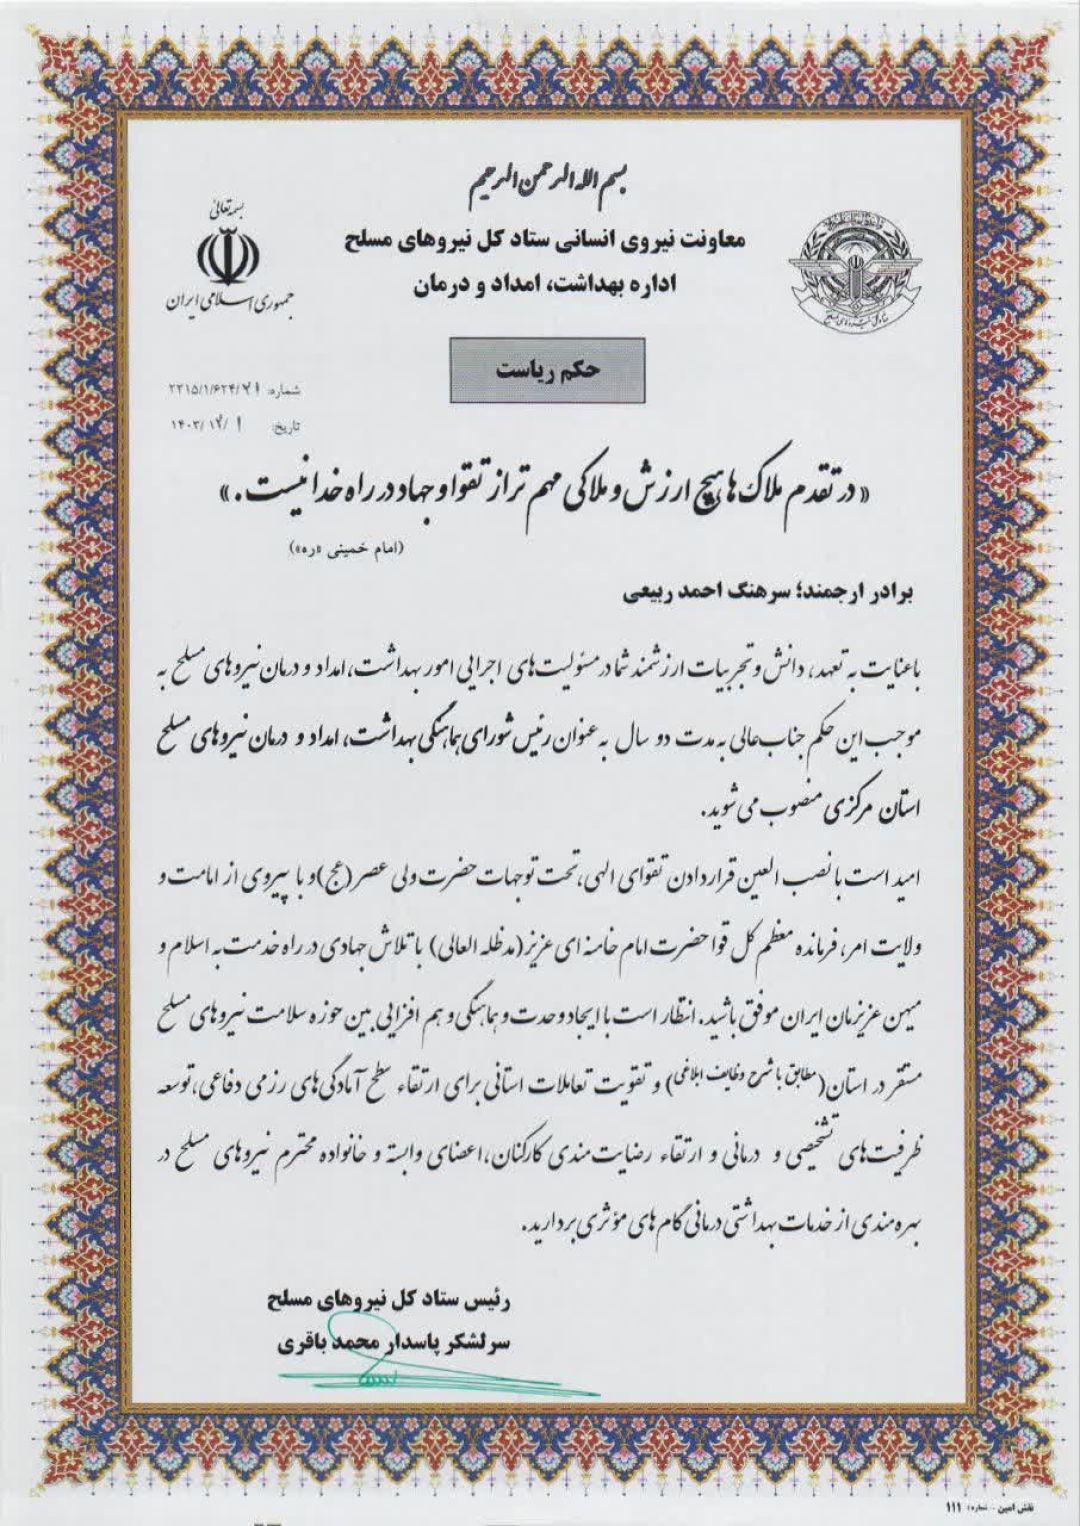 بسم الله الرحمن الرحیم
معاونت نیروی انسانی ستاد کل نیروهای مسلح
اداره بهداشت، امداد و درمان
بسمه تعالی
جمهوری اسلامی ایران
حکم ریاست
شماره: ۲۲۱۵/۱/۶۲۴/۲۱
تاریخ: ۱۴۰۳/۱۲/۱
«در تقدم ملاک ها هیچ ارزش و ملاکی مهم تر از تقوا و جهاد در راه خدا نیست.»
(امام خمینی «ره»)
برادر ارجمند؛ سرهنگ احمد ربیعی
با عنایت به تعهد، دانش و تجربیات ارزشمند شما در مسئولیت‌های اجرایی امور بهداشت، امداد و درمان نیروهای مسلح به
موجب این حکم جناب عالی به مدت دو سال به عنوان رئیس شورای هماهنگی بهداشت، امداد و درمان نیروهای مسلح
استان مرکزی منصوب می شوید.
امید است با نصب العین قرار دادن تقوای الهی، تحت توجهات حضرت ولی عصر (عج) و با پیروی از امامت و
ولایت امر، فرمانده معظم کل قوا حضرت امام خامنه ای عزیز (مدظله العالی) با تلاش جهادی در راه خدمت به اسلام و
میهن عزیزمان ایران موفق باشید. انتظار است با ایجاد وحدت و هماهنگی و هم افزایی بین حوزه سلامت نیروهای مسلح
مستقر در استان (مطابق با شرح وظایف ابلاغی) و تقویت تعاملات استانی برای ارتقاء سطح آمادگی‌های رزمی دفاعی، توسعه
ظرفیت‌های تشخیصی و درمانی و ارتقاء رضایت مندی کارکنان، اعضای وابسته و خانواده محترم نیروهای مسلح در
بهره مندی از خدمات بهداشتی درمانی گام های مؤثری بردارید.
رئیس ستاد کل نیروهای مسلح
سرلشکر پاسدار محمد باقری
نقش امین - شماره: ۱۱۱